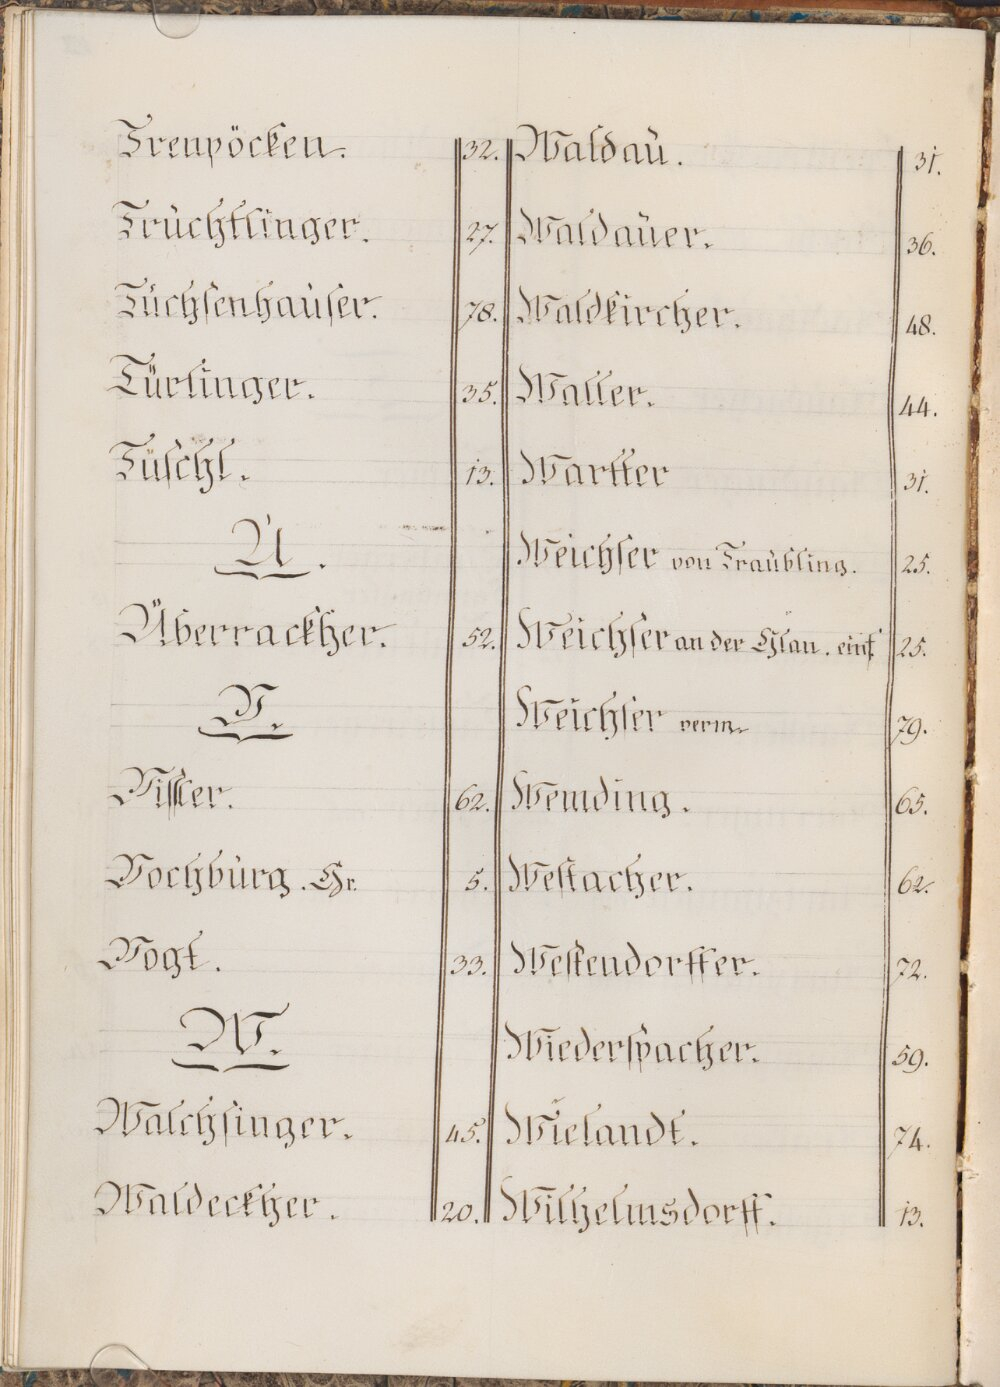 Trenpöcken. 32.
Trüchtlinger. 27.
Tüchsenhauser. 78.
Türlinger. 35.
Tüschl. 13.
U.
Überrackher. 52.
V.
Visler. 62.
Vochburg. Gr. 5.
Vogt. 33.
W.
Walchsinger. 45.
Waldeckher. 20.
Waldau. 31.
Waldauer. 36.
Waldkircher. 48.
Waller. 44.
Wartter 31.
Weichser von Traubling. 25.
Weichser an der Glan. 25.
Weichser verm. 79.
Wemding. 65.
Westacher. 62.
Westendorffer. 72.
Wiederspacher. 59.
Wielandt. 74.
Wilhelmsdorff. 13.